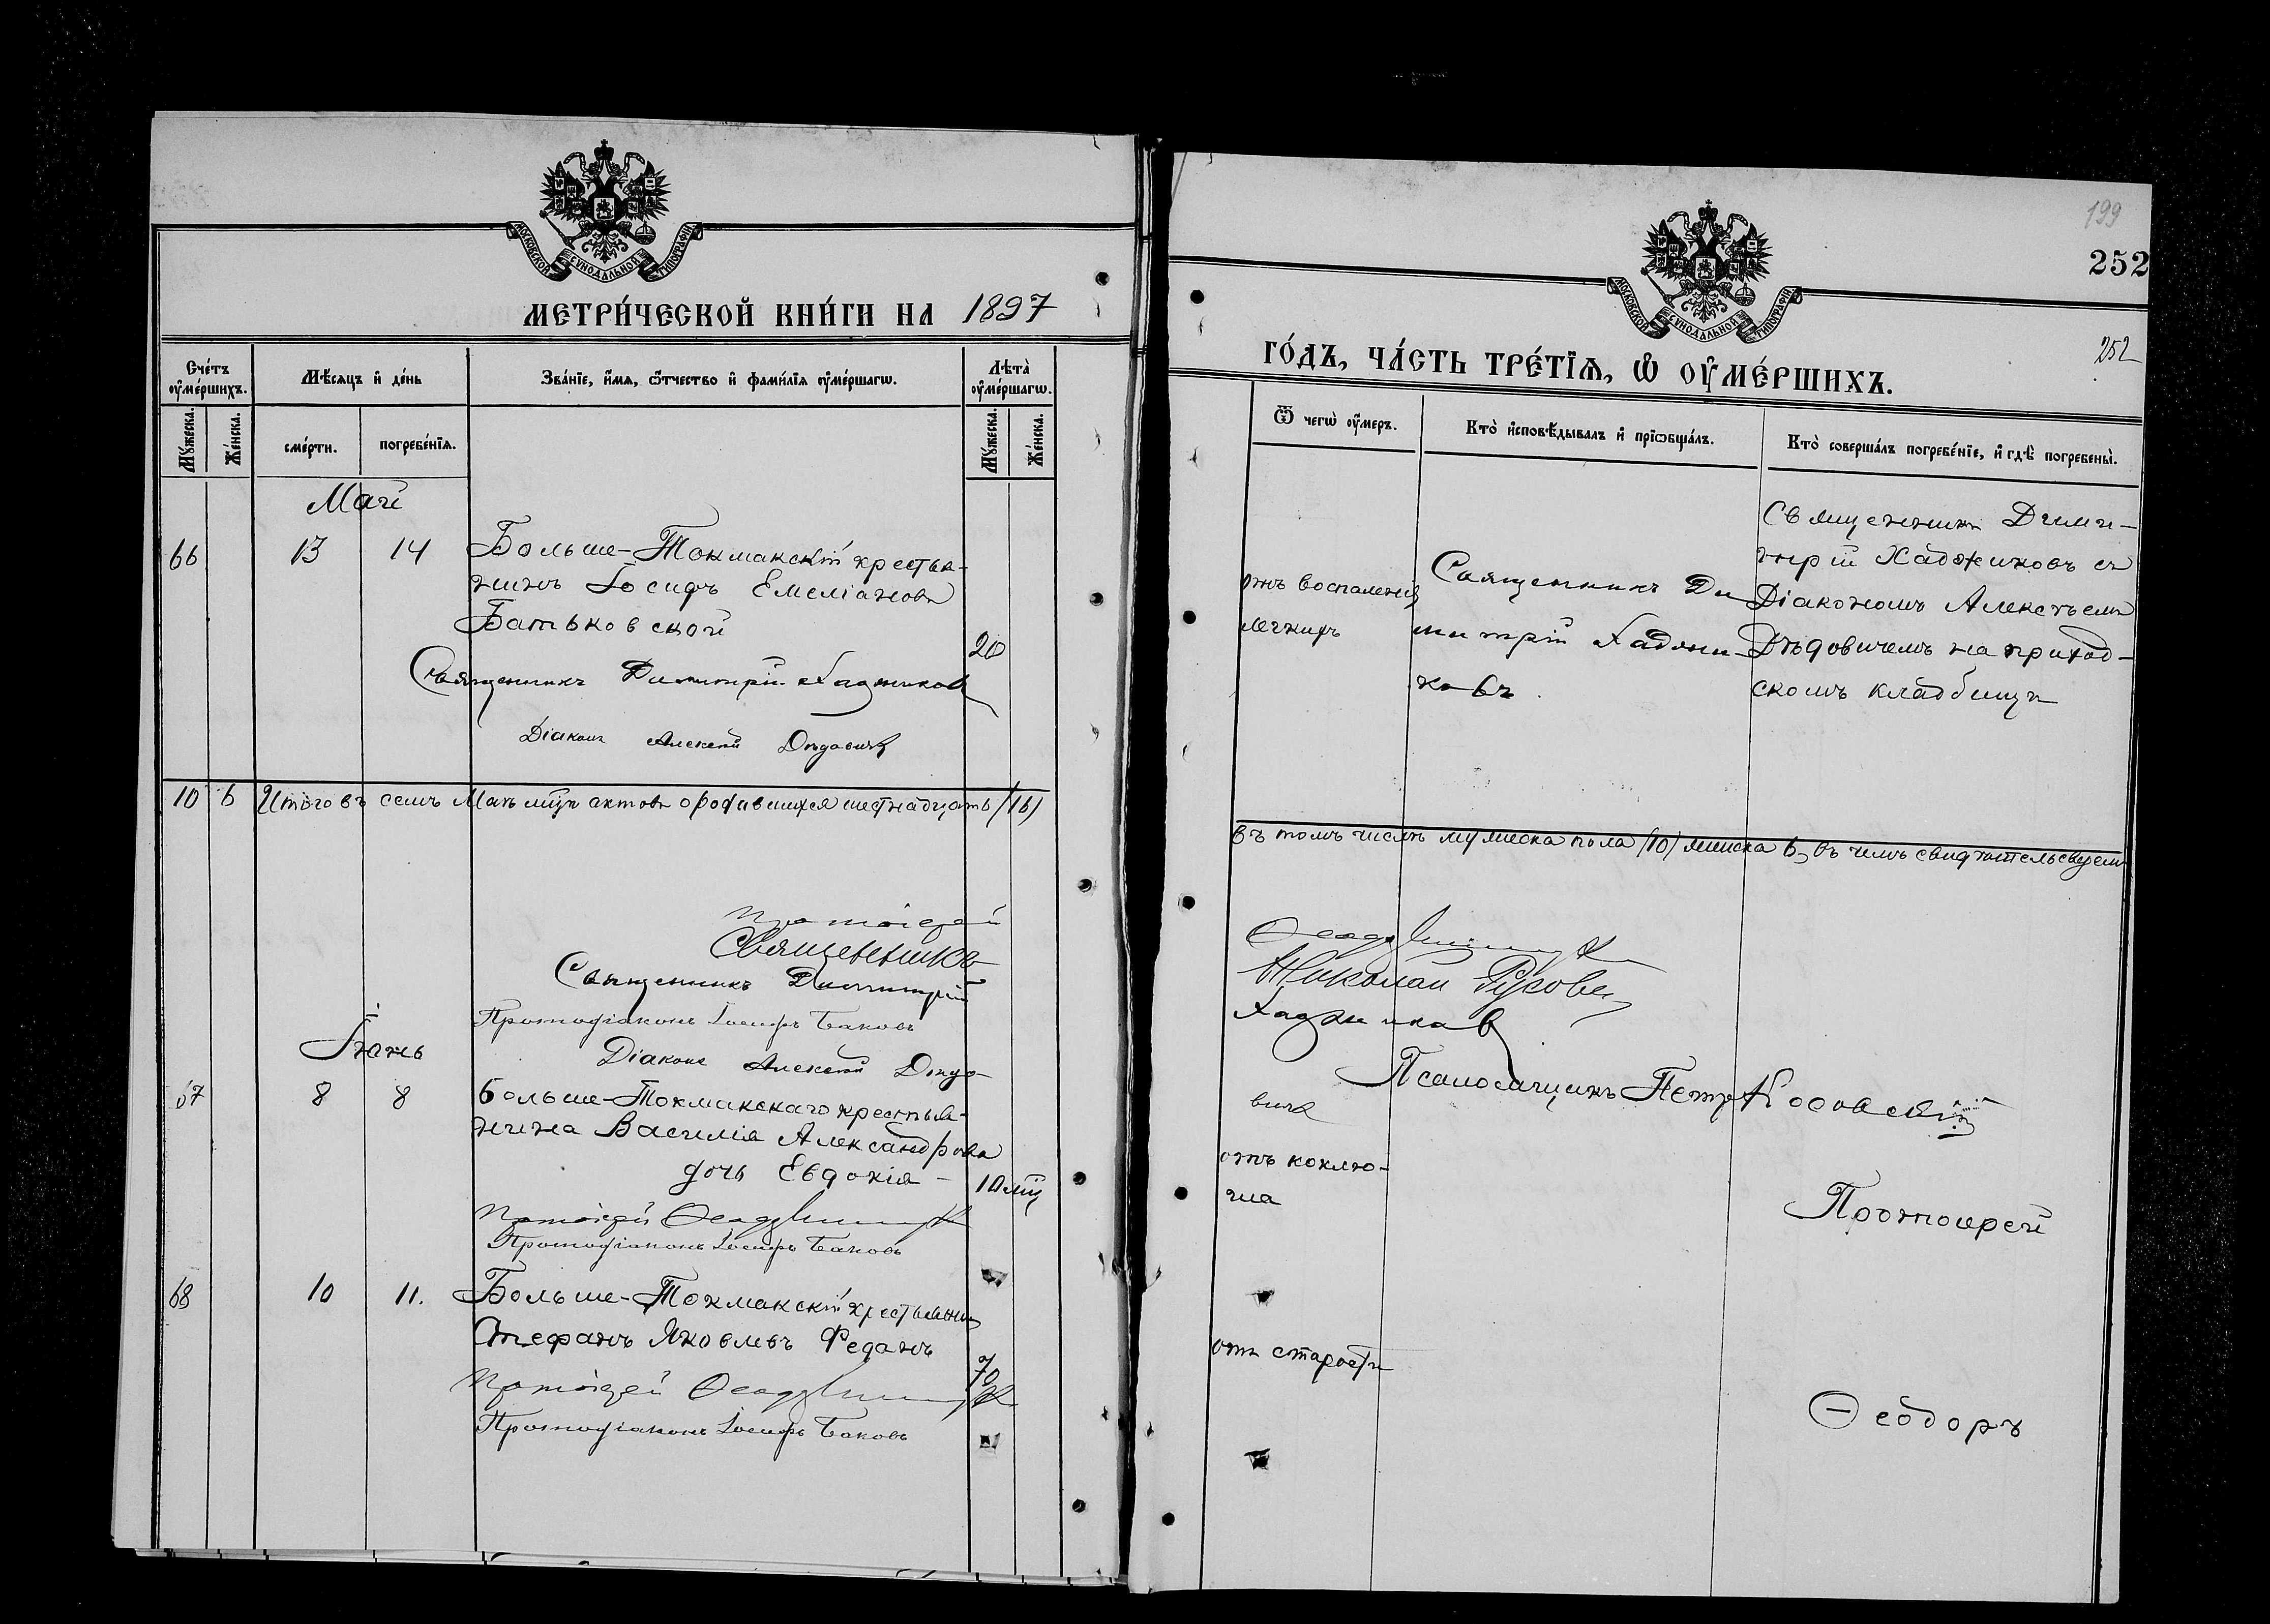 МОСКОВСКОЙ СѴНОДАЛЬНОЙ ТИПОГРАФІИ
МЕТРИ́ЧЕСКОЙ КНИ́ГИ НА 1897
Сче́тъ ᲂу҆ме́ршихъ.
Мꙋ́жеска.
Же́нска.
Мѣ́сяцъ и҆ де́нь
сме́рти.
погребе́нїѧ.
Зва́нїе, и҆́мѧ, ѻ҆́тчество и҆ фами́лїѧ ᲂу҆ме́ршагѡ.
Лѣ́та ᲂу҆ме́ршагѡ.
Мꙋ́жеска.
Же́нска.
Май
66 13 14 Больше-Токмакскій крестья-
нинъ Іосифъ Емеліановъ
Батьковской
20
Священникъ Димитрій Хаджиновъ
Діаконъ Алексей Дѣдовичъ
10 6 Итого въ семъ Маѣ мцѣ актовъ шестнадцать (16)
Протоіерей
Священникъ
Священникъ Димитрій
Протодіаконъ Іосифъ Баковъ
Іюнь
Діаконъ Алексей Дѣдо-
67 8 8 Больше-Токмакскаго крестья-
нина Василія Александрова
дочь Евдокія - 10 мц
Протоіерей
Протодіаконъ Іосифъ Баковъ
68 10 11. Больше-Токмакскій крестьянинъ
Стефанъ Яковлевъ Феданъ
70
Протоіерей
Протодіаконъ Іосифъ Баковъ
199
252
МОСКОВСКОЙ СѴНОДАЛЬНОЙ ТИПОГРАФІИ
252
ГО́ДЪ, ЧА́СТЬ ТРЕ́ТЇѦ, Ѡ҆ ОУ҆МЕ́РШИХЪ.
Ѿ чегѡ̀ ᲂу҆́меръ.
Кто̀ и҆сповѣ́дывалъ и҆ прїѡбща́лъ.
Кто̀ соверша́лъ погребе́нїе, и҆ гдѣ̀ погребены̀.
отъ воспаленія
легкихъ
Священникъ Ди-
митрій Хаджи-
новъ.
Священникъ Дими-
трій Хаджиновъ съ
Діакономъ Алексѣемъ
Дѣдовичемъ на приход-
скомъ кладбищѣ
въ томъ числѣ мужеска пола (10) женска 6, въ чемъ свидѣтельствуемъ
Николай
Хаджиновъ
Псаломщикъ Петръ Косовскій
вичъ
отъ коклю-
ша
Протоіерей
отъ старости
Ѳеодоръ